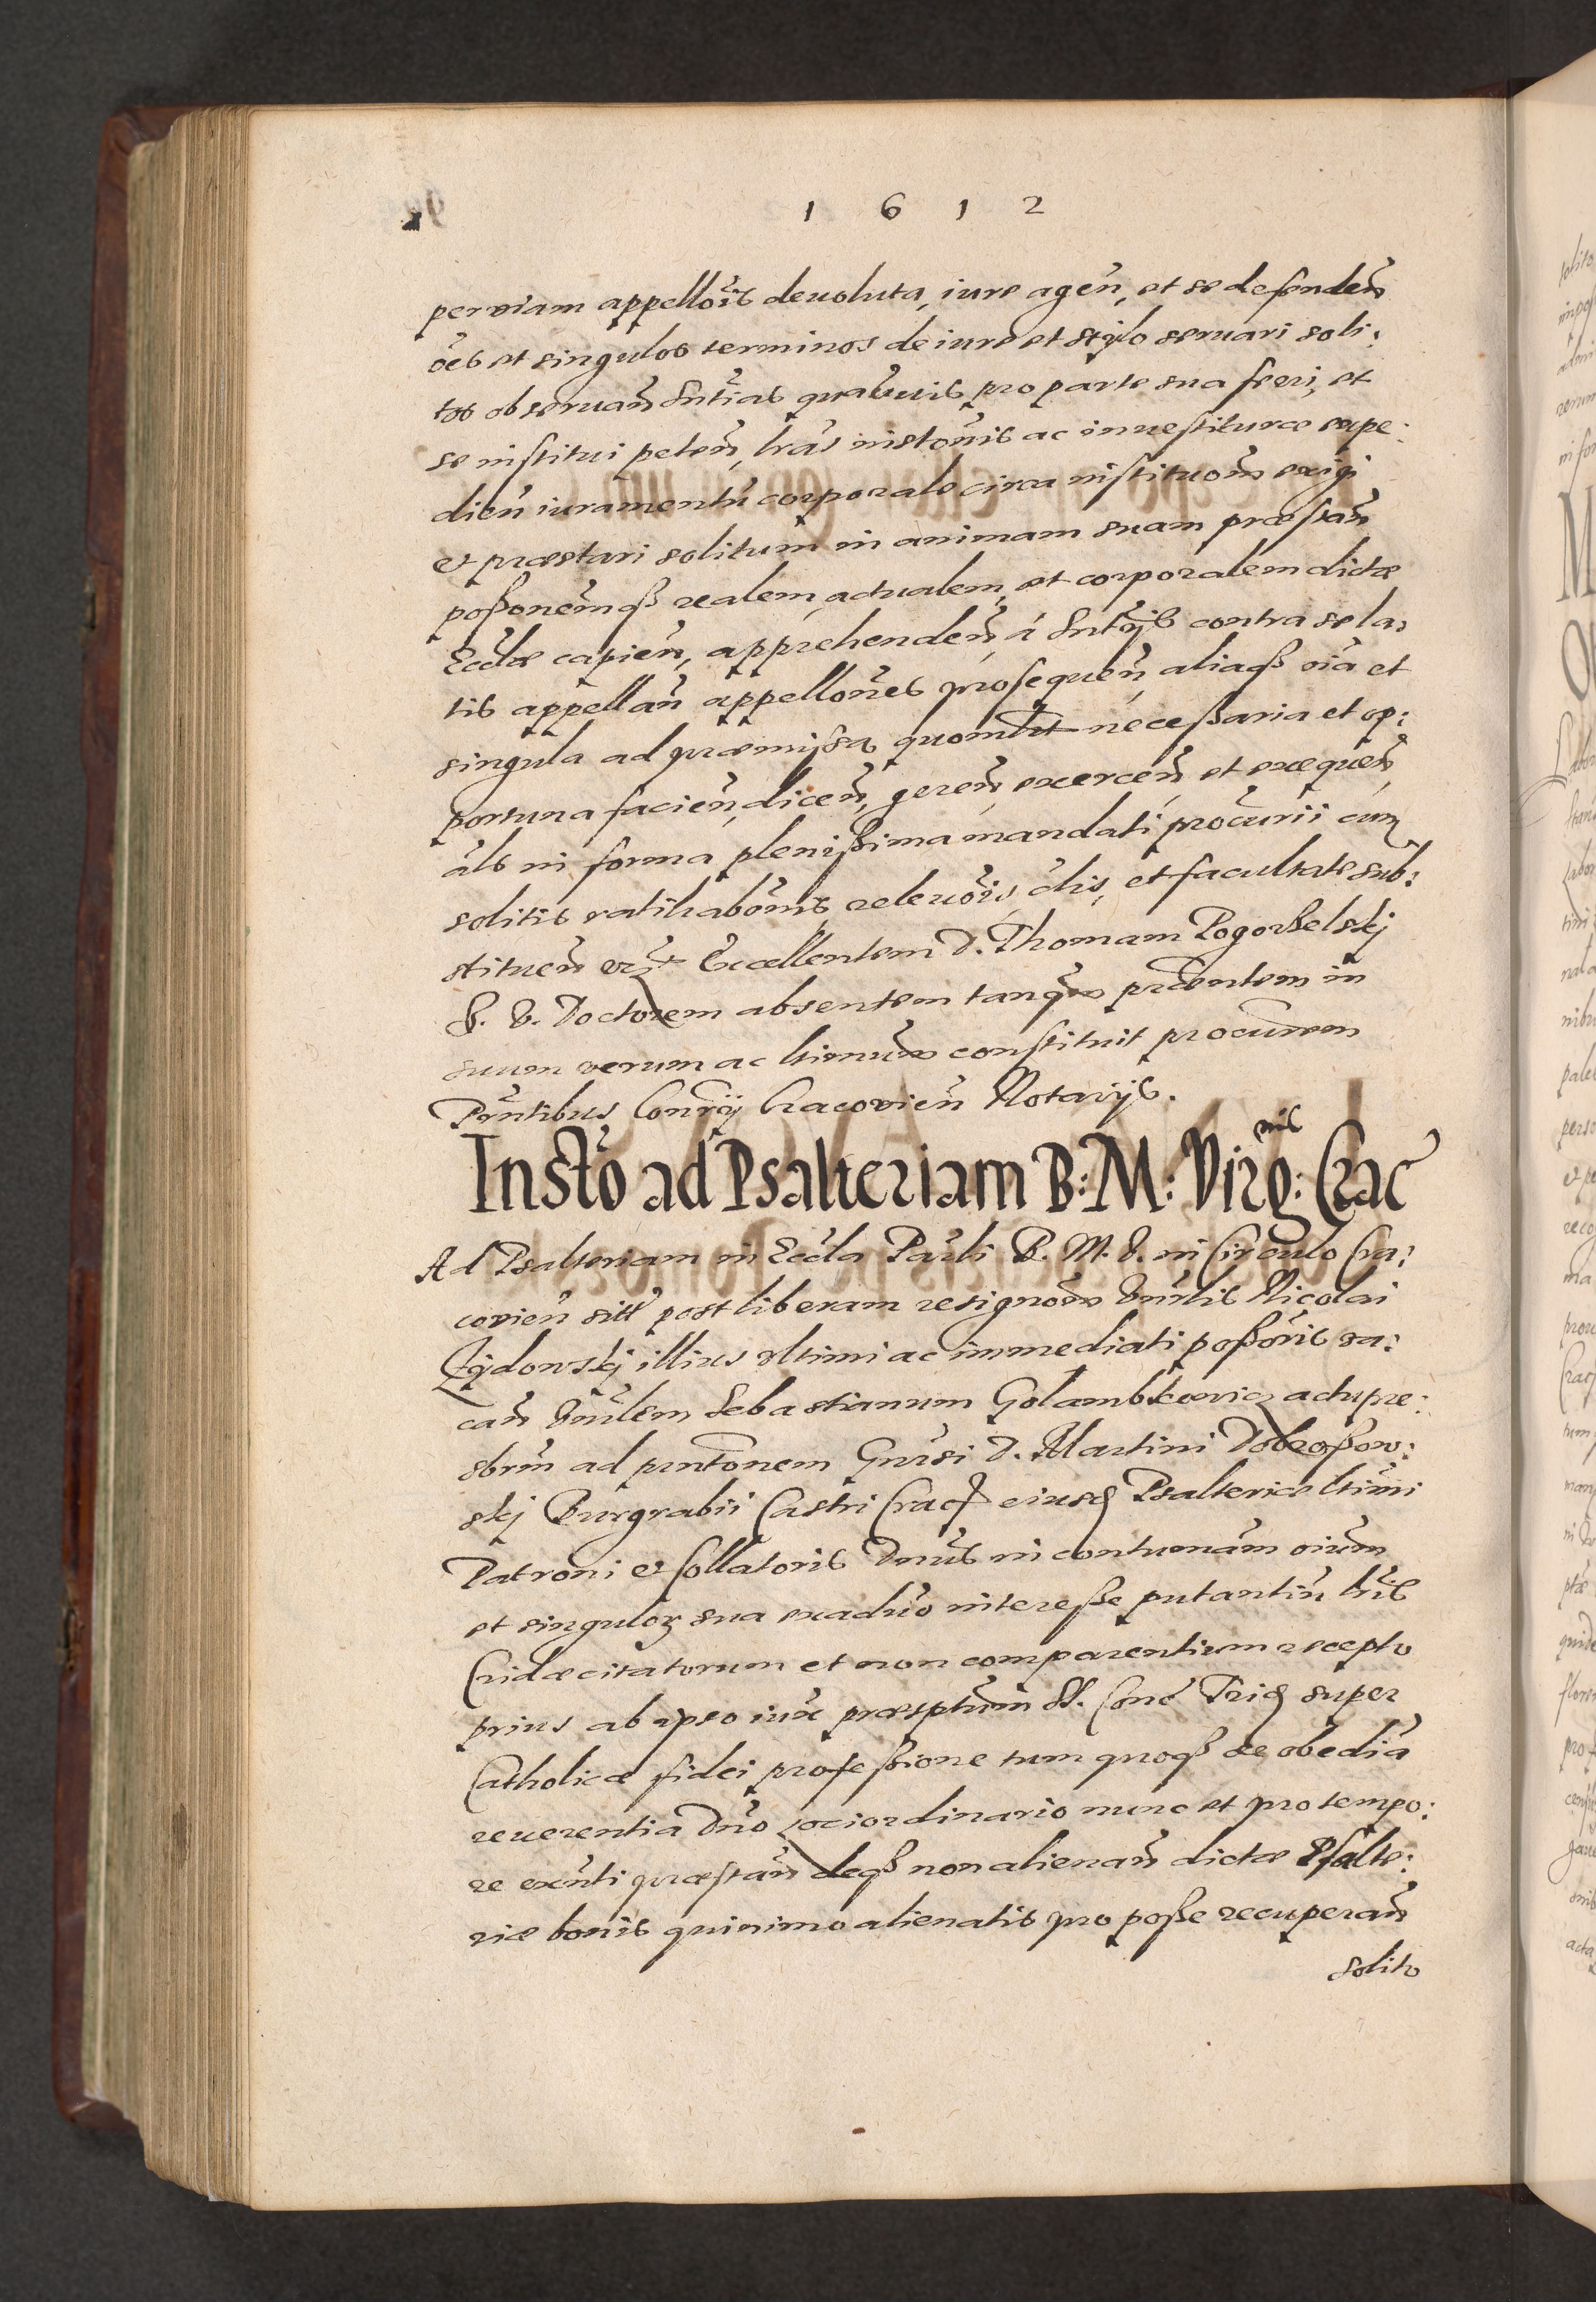 1 6 1 2
per viam appellõis deuoluta, iure agen̄, et se defenden̄
õẽs et singulos terminos de iure et stylo seruari soli:
tos obseruan̄ sntĩas quasuis pro parte sua fieri, et
se institui peten̄, lrãs instõnis ac inuestituræ expe:
dien̄ iuramentũ corporale circa institucõm̃ exigi
et præstari solitum in animam suam præstan̄
poßonẽmqß realem, actualem, et corporalem dictæ
Ecclæ capien̄, apprehenden̄, á sntĩjs contra se la:
tis appellan̄ appellõnes prosequen̄, aliaqß oĩa et
singula ad præmissa quomlt neceßaria et op:
portuna facien̄, dicen̄, geren̄, exercen̄, et exequen̄,
als in forma plenißima mandati procũrii cum
solitis ratihabõnis, releuõis, clis, et facultate sub:
stituen̄ Excellentem D. Thomam Pogorßelskj
J. V. Doctorem absentem tanq̃m prãentem in
suum verum ac ltĩmum constituit procũrem
Prñtibus Consrij Cracovien̄ Notarijs.
Instõ ad Psalteriam B: M: Virg:nis Crac
Ad Psalteriam in Eccla Parli B. M. V. in Circulo Cra:
covien̄ sitã post liberam resignõem Vnrlis Nicolai
Zydowskj illius vltimi ac immediati poßoris va:
can̄ Vnrlem Sebastianum Golambkowicz actu pre:
sbrm̃ ad prntõnem Gnrsi D. Martini Dobroßow:
skj Burgrabii Castri Crac eiusd Psalteriæ ltĩmi
Patroni et Collatoris Dnus in contumãm oĩum
et singulor sua exaduo intereße putantiũ lrĩs
Cridæ citatorum et non comparentium recepto
prius ab ipso iux præscptum SS. Conc Trid super
Catholicæ fidei profeßione tum quoqß de obediã
reuerentia Dno loci ordinario nunc et pro tempo:
re exñti præstan̄ deqß non alienan̄ dictæ Psalte:
riæ bonis quinimo alienatis pro poße recuperan̄
solito